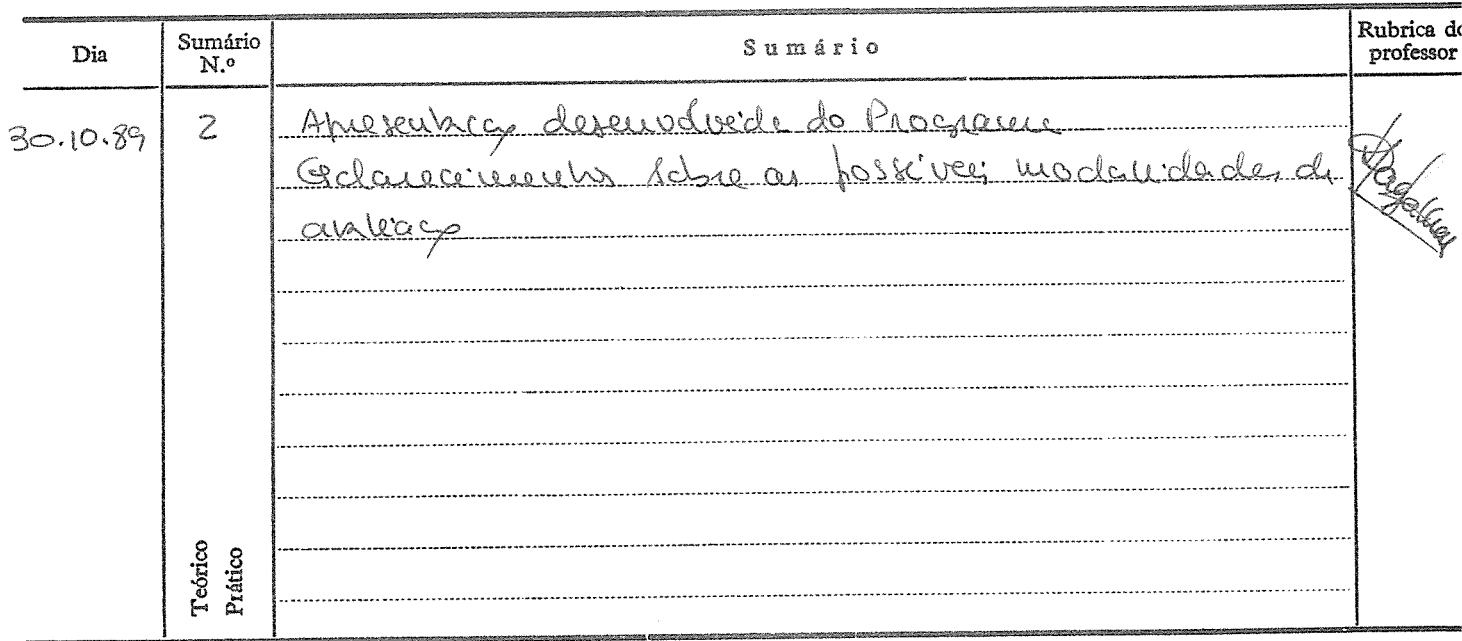 Dia
Sumário N.º
Sumário
Rubrica do professor
30.10.89
2
Apresentação desenvolvida do Programa
Esclarecimentos sobre as possíveis modalidades de
avaliação
Teórico
Prático